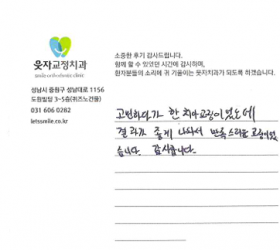 웃자교정치과
smile orthodontic clinic
성남시 중원구 성남대로 1156
도원빌딩 3~5층(퀴즈노건물)
031 606 0282
letssmile.co.kr
소중한 후기 감사드립니다.
함께 할 수 있었던 시간에 감사하며,
환자분들의 소리에 귀 기울이는 웃자치과가 되도록 하겠습니다.
고민하다가 한 치아교정이었는데
결과가 좋게 나와서 만족스러운 교정이었
습니다. 감사합니다.